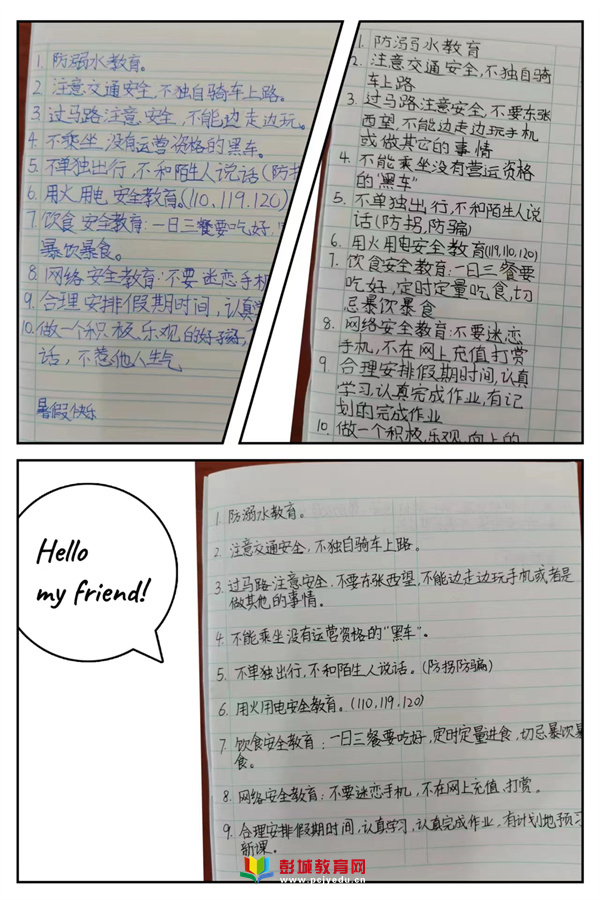 1. 防溺水教育。
2. 注意交通安全,不独自骑车上路。
3. 过马路注意安全,不能边走边玩。
4. 不乘坐没有运营资格的黑车。
5. 不单独出行,不和陌生人说话(防拐
6. 用火用电安全教育(110,119,120)
7. 饮食安全教育:一日三餐要吃好,
暴饮暴食。
8. 网络安全教育:不要迷恋手机
9. 合理安排假期时间,认真学
10. 做一个积极、乐观的好孩
话,不惹他人生气
暑假快乐
1. 防溺水教育
2. 注意交通安全,不独自骑
车上路
3. 过马路注意安全,不要东张
西望,不能边走边玩手机
或做其它的事情
4. 不能乘坐没有营运资格
的“黑车”
5. 不单独出行,不和陌生人说
话(防拐,防骗)
6. 用火用电安全教育(119,110,120)
7. 饮食安全教育:一日三餐要
吃好,定时定量吃食,切
忌暴饮暴食
8. 网络安全教育:不要迷恋
手机,不在网上充值打赏
9. 合理安排假期时间,认真
学习,认真完成作业,有记
划的完成作业
10. 做一个积极,乐观,向上的
Hello
my friend!
1. 防溺水教育。
2. 注意交通安全,不独自骑车上路。
3. 过马路注意安全,不要东张西望,不能边走边玩手机或者是
做其他的事情。
4. 不能乘坐没有运营资格的“黑车”。
5. 不单独出行,不和陌生人说话。(防拐防骗)
6. 用火用电安全教育。(110,119,120)
7. 饮食安全教育:一日三餐要吃好,定时定量进食,切忌暴饮暴
食。
8. 网络安全教育:不要迷恋手机,不在网上充值、打赏。
9. 合理安排假期时间,认真学习,认真完成作业,有计划地预习
新课。
彭城教育网
www.pcjyedu.cn